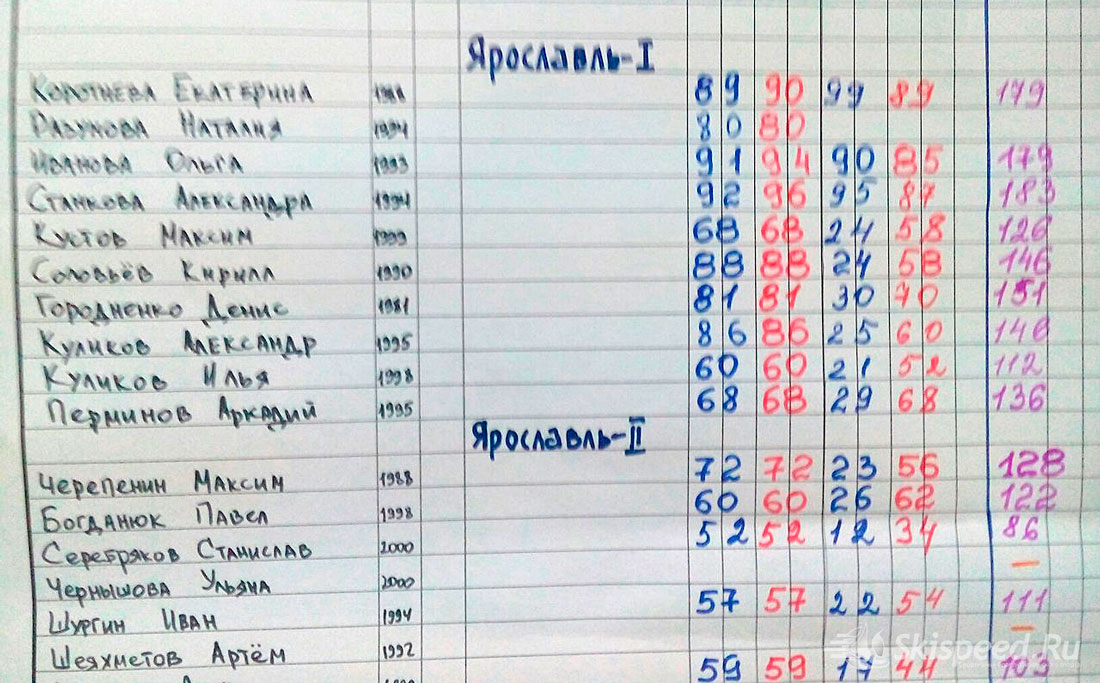 Ярославль-I
Коротнева Екатерина 89 90 99 89 179
Разунова Наталия 1994 80 80
Иванова Ольга 1993 91 94 90 85 179
Станкова Александра 1994 92 96 95 87 183
Кустов Максим 1999 68 68 24 58 126
Соловьёв Кирилл 1990 88 88 24 58 146
Городненко Денис 1981 81 81 30 70 151
Куликов Александр 1995 86 86 25 60 146
Куликов Илья 1998 60 60 21 52 112
Перминов Аркадий 1995 68 68 29 68 136
Ярославль-II
Черепенин Максим 1988 72 72 23 56 128
Богданюк Павел 1998 60 60 26 62 122
Серебряков Станислав 2000 52 52 12 34 86
Чернышова Ульяна 2000 —
Шургин Иван 1994 57 57 22 54 111
Шеяхметов Артём 1992 —
59 59 17 44 103
Skispeed.Ru